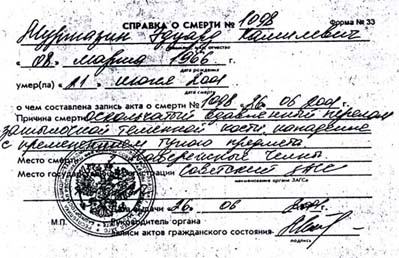 СПРАВКА О СМЕРТИ № 1098 Форма № 33
Муртазин Эдуард Камилевич
"08" марта 1966 г.
дата рождения
умер(ла) "21" июня 2001 г.
о чем составлена запись акта о смерти № 1098 26 06 2001 г.
Причина смерти Оскольчатый вдавленный перелом
теменной кости, нападение
с применением тупого предмета
Место смерти Набережные Челны
Место государственной регистрации Советский ЗАГС
наименование органа ЗАГСа
Дата выдачи "26" 06 2001 г.
М.П. Руководитель органа
записи актов гражданского состояния
подпись